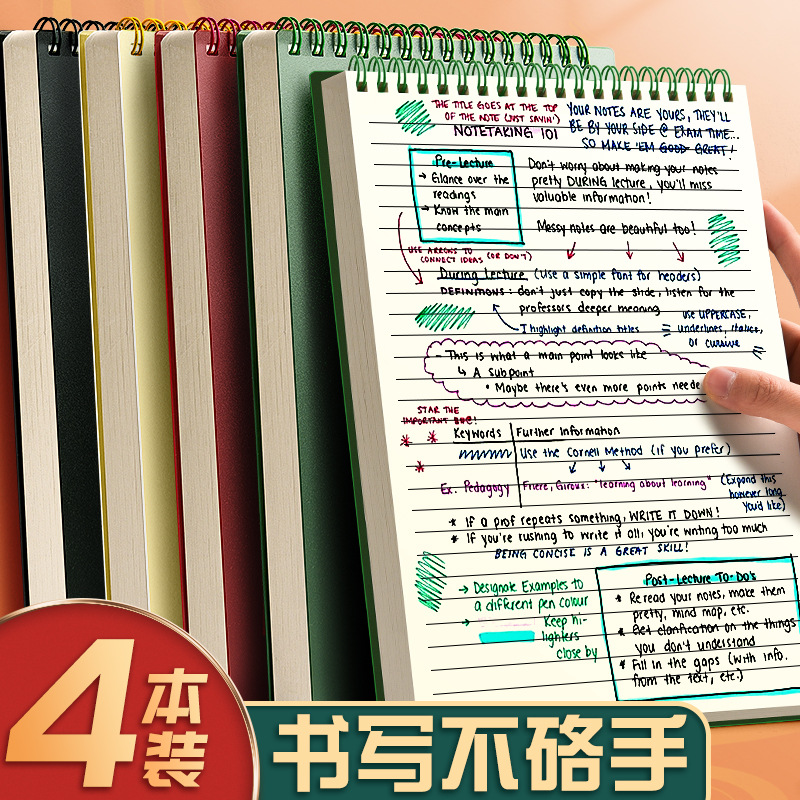 THE TITLE GOES AT THE TOP
OF THE NOTE (JUST SAYIN')
NOTETAKING 101
YOUR NOTES ARE YOURS, THEY'LL
BE BY YOUR SIDE @ EXAM TIME...
SO MAKE 'EM GOOD GREAT!
Pre-Lecture
→ Glance over the
readings
→ Know the main
concepts
Don't worry about making your notes
pretty DURING lecture, you'll miss
valuable information!
Messy notes are beautiful too!
USE ARROWS TO
CONNECT IDEAS (OR DON'T)
During Lecture (Use a simple font for headers)
DEFINITIONS: don't just copy the slide, listen for the
professors deeper meaning
I highlight definition titles
use UPPERCASE,
underlines, italics,
or cursive
- This is what a main point looks like
↳ A subpoint
• Maybe there's even more points neede
STAR THE
IMPORTANT
Keywords
Further Information
Use the Cornell Method (if you prefer)
Ex. Pedagogy
Friere, Giroux: "learning about learning"
(Expand this
however long
you'd like)
* If a prof repeats something, WRITE IT DOWN!
* If you're rushing to write it all, you're writing too much
BEING CONCISE IS A GREAT SKILL!
→ Designate Examples to
a different pen colour
→ Keep hi-
lighters
close by
Post-Lecture To-Do's
* Reread your notes, make them
pretty, mind map, etc.
* Get clarification on the things
you don't understand
* Fill in the gaps (with info.
from the text, etc.)
4本装
书写不硌手